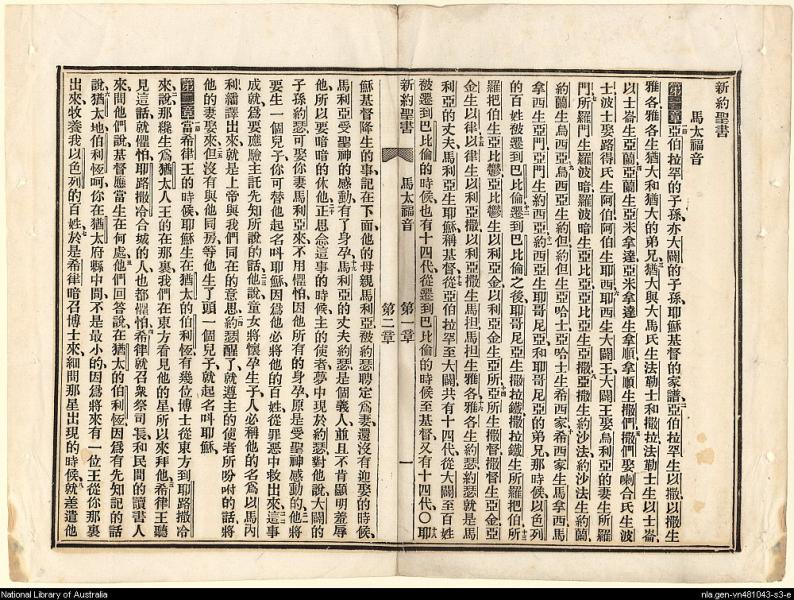 新約聖書
馬太福音
第一章亞伯拉罕的子孫亦大闢的子孫耶穌基督的家譜亞伯拉罕生以撒以撒生
雅各雅各生猶大和猶大的弟兄猶大與大馬氏生法勒士和撒拉法勒士生以士崙
以士崙生亞蘭亞蘭生亞米拿達亞米拿達生拿順拿順生撒們撒們娶喇合氏生波
士波士娶路得氏生阿伯阿伯生耶西耶西生大闢王大闢王娶烏利亞的妻生所羅
門所羅門生羅波暗羅波暗生亞比亞亞比亞生亞撒亞撒生約沙法約沙法生約蘭
約蘭生烏西亞烏西亞生約但約但生亞哈士亞哈士生希西家希西家生馬拿西馬
拿西生亞門亞門生約西亞約西亞生耶哥尼亞和耶哥尼亞的弟兄那時候以色列
的百姓被遷到巴比倫遷到巴比倫之後耶哥尼亞生撒拉鐵撒拉鐵生所羅把伯所
羅把伯生亞比鬱亞比鬱生以利亞金以利亞金生亞所亞所生撒督撒督生亞金亞
金生以律以律生以利亞撒以利亞撒生馬担馬担生雅各雅各生約瑟約瑟就是馬
利亞的丈夫馬利亞生耶穌稱基督從亞伯拉罕至大闢共有十四代從大闢至百姓
被遷到巴比倫的時候也有十四代從遷到巴比倫的時候至基督又有十四代○耶
新約聖書 馬太福音 第一章 第二章 一
穌基督降生的事記在下面他的母親馬利亞被約瑟聘定為妻還沒有迎娶的時候、
馬利亞受聖神的感動有了身孕馬利亞的丈夫約瑟是個義人並且不肯顯明羞辱
他所以要暗暗的休他正思念這事的時候主的使者夢中現於約瑟對他說大闢的
子孫約瑟可娶你妻馬利亞來不用懼怕因他所有的身孕原是受聖神感動的他將
要生一個兒子你可替他起名叫耶穌因為他必將他的百姓從罪惡中救出來這事
成就為要應驗主託先知所說的話他說童女將懷孕生子人必稱他的名為以馬內
利繙譯出來就是上帝與我們同在的意思約瑟醒了就遵主的使者所吩咐的話將
他的妻娶來但沒有與他同房等他生了頭一個兒子就起名叫耶穌
第二章當希律王的時候耶穌生在猶太的伯利恆有幾位博士從東方到耶路撒冷
來說那纔生為猶太人王的在那裏我們在東方看見他的星所以來拜他希律王聽
見這話就懼怕耶路撒冷合城的人也都懼怕希律就召衆祭司長和民間的讀書人
來問他們說基督應當生在何處他們回答說在猶太的伯利恆因為有先知記的話
說猶太地伯利恆呵你在猶太府縣中間不是最小的因為將來有一位王從你那裏
出來牧養我以色列的百姓於是希律暗召博士來細問那星出現的時候就差遣他
National Library of Australia
nla.gen-vn481043-s3-e